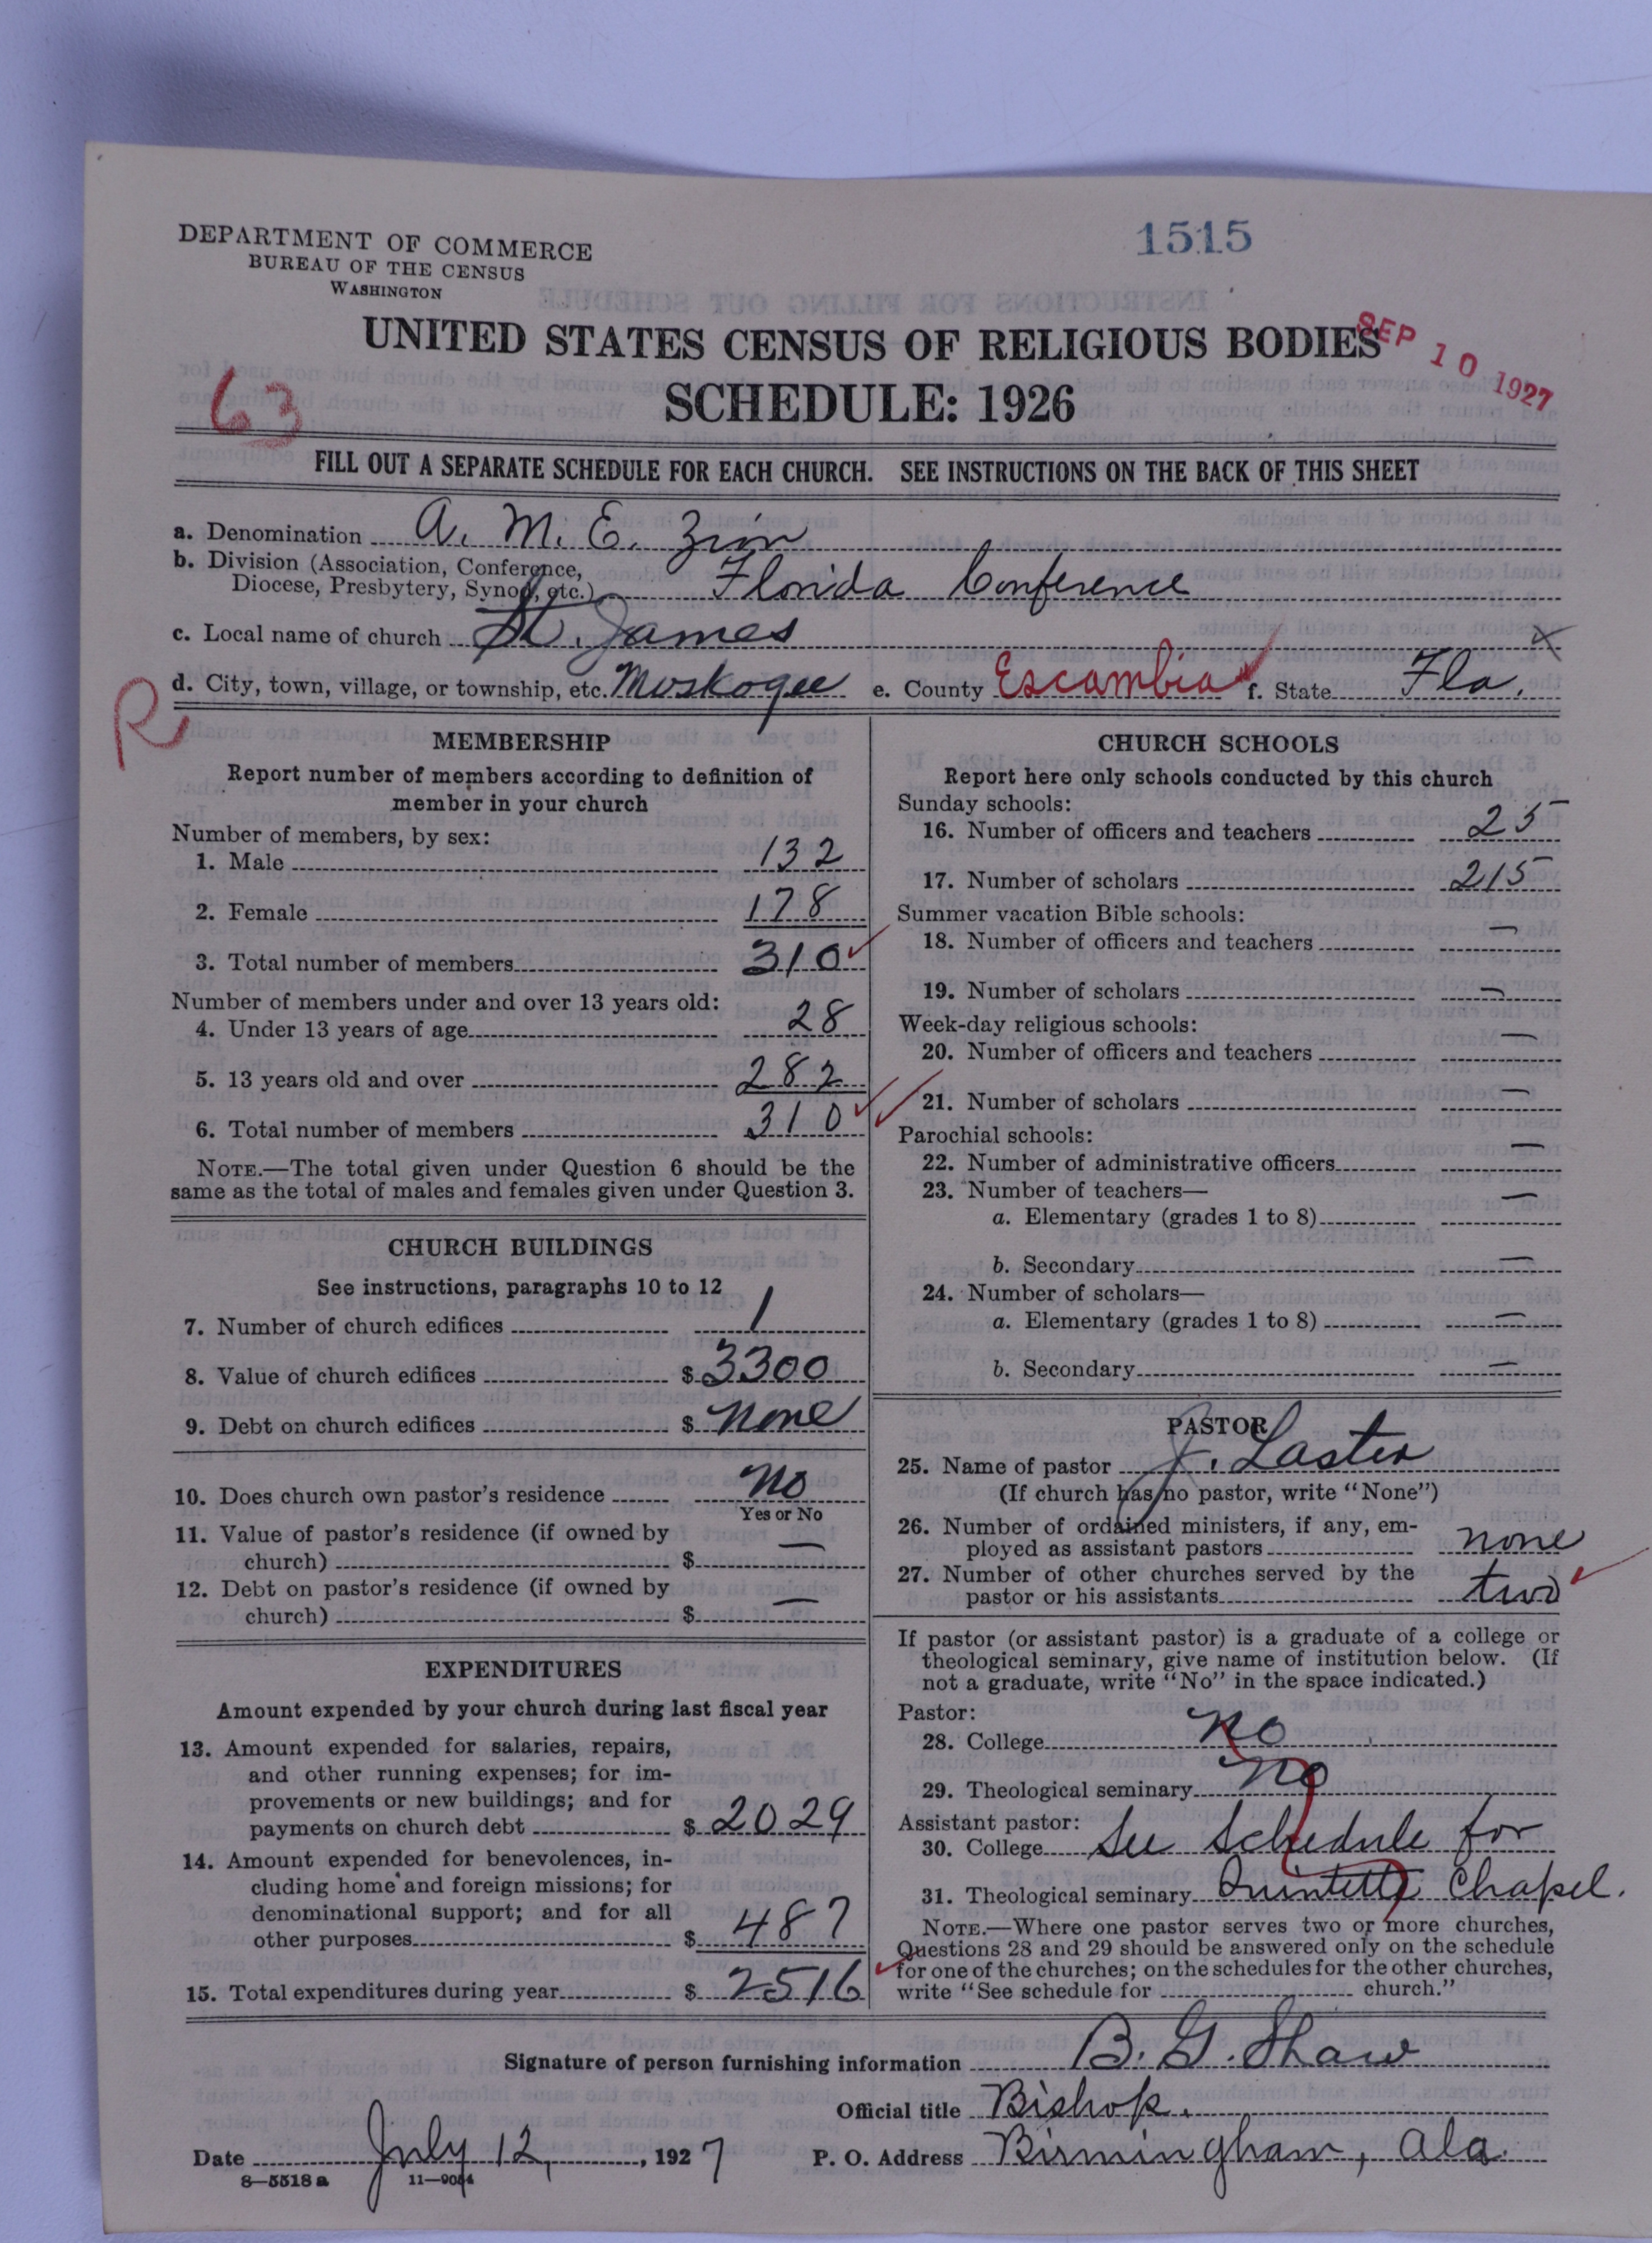 DEPARTMENT OF COMMERCE
BUREAU OF THE CENSUS
WASHINGTON
1515
UNITED STATES CENSUS OF RELIGIOUS BODIES
SEP 10 1927
63
SCHEDULE: 1926
FILL OUT A SEPARATE SCHEDULE FOR EACH CHURCH. SEE INSTRUCTIONS ON THE BACK OF THIS SHEET
a. Denomination A. M. E. Zion
b. Division (Association, Conference,
Diocese, Presbytery, Synod, etc.) Florida Conference
c. Local name of church St. James
d. City, town, village, or township, etc. Muskogee e. County Escambia f. State Fla.
R
MEMBERSHIP
Report number of members according to definition of
member in your church
Number of members, by sex:
1. Male 132
2. Female 178
3. Total number of members 310
Number of members under and over 13 years old:
4. Under 13 years of age 28
5. 13 years old and over 282
6. Total number of members 310
NOTE.—The total given under Question 6 should be the
same as the total of males and females given under Question 3.
CHURCH BUILDINGS
See instructions, paragraphs 10 to 12
7. Number of church edifices 1
8. Value of church edifices $ 3300
9. Debt on church edifices $ None
10. Does church own pastor's residence No
Yes or No
11. Value of pastor's residence (if owned by
church) $ —
12. Debt on pastor's residence (if owned by
church) $ —
EXPENDITURES
Amount expended by your church during last fiscal year
13. Amount expended for salaries, repairs,
and other running expenses; for im-
provements or new buildings; and for
payments on church debt $ 2029
14. Amount expended for benevolences, in-
cluding home and foreign missions; for
denominational support; and for all
other purposes $ 487
15. Total expenditures during year $ 2516
CHURCH SCHOOLS
Report here only schools conducted by this church
Sunday schools:
16. Number of officers and teachers 25
17. Number of scholars 215
Summer vacation Bible schools:
18. Number of officers and teachers —
19. Number of scholars —
Week-day religious schools:
20. Number of officers and teachers —
21. Number of scholars —
Parochial schools:
22. Number of administrative officers —
23. Number of teachers—
a. Elementary (grades 1 to 8) —
b. Secondary —
24. Number of scholars—
a. Elementary (grades 1 to 8) —
b. Secondary —
PASTOR
25. Name of pastor J. Laster
(If church has no pastor, write "None")
26. Number of ordained ministers, if any, em-
ployed as assistant pastors none
27. Number of other churches served by the
pastor or his assistants two
If pastor (or assistant pastor) is a graduate of a college or
theological seminary, give name of institution below. (If
not a graduate, write "No" in the space indicated.)
Pastor:
28. College No
29. Theological seminary No
Assistant pastor:
30. College See Schedule for
31. Theological seminary Quintette Chapel.
NOTE.—Where one pastor serves two or more churches,
Questions 28 and 29 should be answered only on the schedule
for one of the churches; on the schedules for the other churches,
write "See schedule for church."
Signature of person furnishing information B. G. Shaw
Official title Bishop.
Date July 12, 1927 P. O. Address Birmingham, Ala.
8—5518a 11—9054